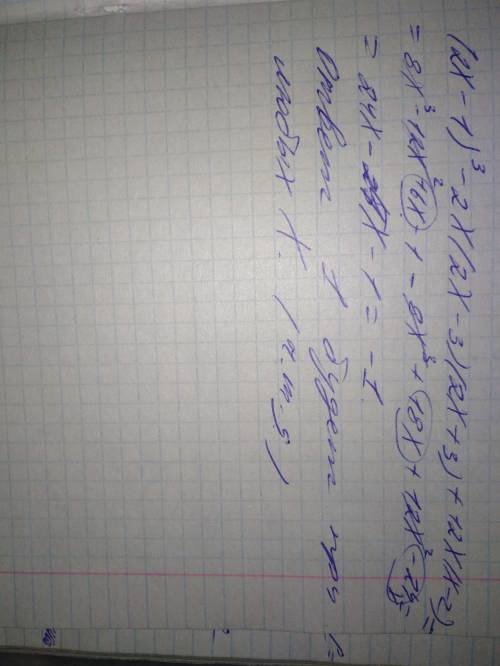 (2x-1)³-2x(2x-3)(2x+3)+12x(x-2)=
=8x³-12x²+6x-1-8x³+18x+12x²-24x=
=24x-24x-1=-1.
Ответ 1 будет при
любых x. (ч.т.д)